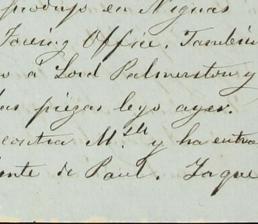 produjo en Niguas
Foreing Office. Tambien
o á Lord Palmerston y
las piezas leyo ayer.
contra M.ᵗʰ y ha entra
ente de Paul. Taque